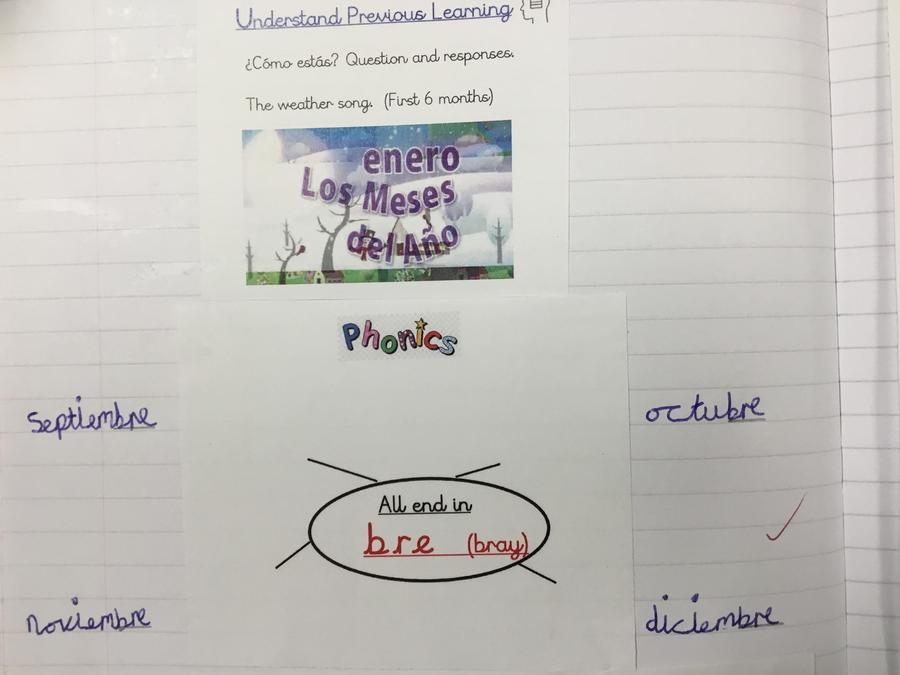 Understand Previous Learning
¿Cómo estás? Question and responses.
The weather song. (First 6 months)
enero
Los Meses
del Año
Phonics
septiembre
octubre
All end in
bre (bray)
noviembre
diciembre